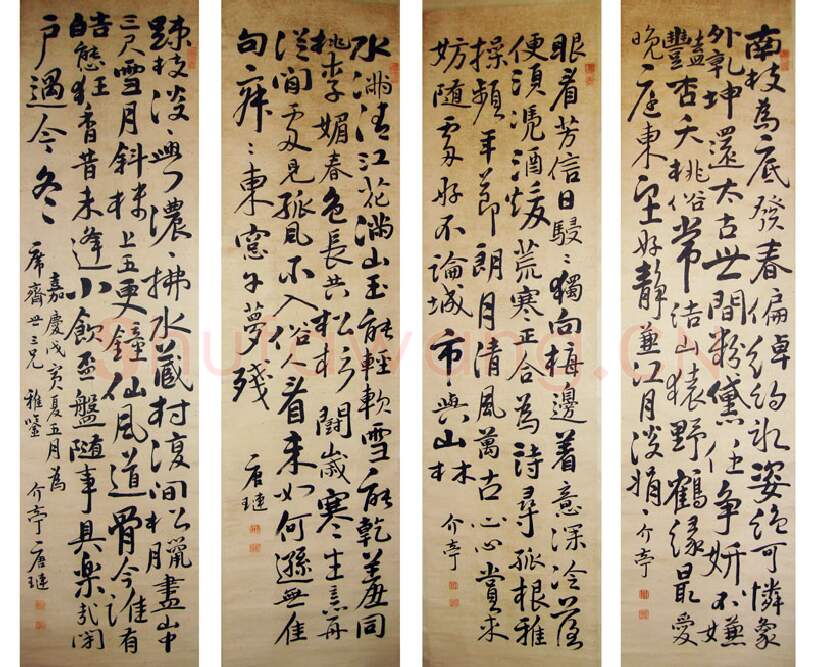 南枝為底發春偏綽約氷姿絕可憐象
外乾坤還太古世間粉黛任争妍不嫌
豔杏夭桃俗常结山猿野鶴缘最愛
晚庭東望好静兼江月淡娟々介亭
眼看芳信日駸々獨向梅邊着意深冷蕊
便須凭酒煖荒寒正合為詩尋孤根雅
操頻年節朗月清風萬古心心賞未
妨随處好不論城市與山林
介亭
水满清江花满山玉能輕軟雪能乾羞同
桃李媚春色長共松杉鬪歲寒生意再
從閒處見孤風不入俗人看来如何遜無佳
句寂々東窓午夢殘
唐璉
疎枝淡々興濃々拂水藏村復間松臘盡山中
三尺雪月斜樓上五更鐘仙風道骨今誰有
皓態狂香昔未逢小飲盃盤随事具樂哉閉
户過今冬
嘉慶戊寅夏五月為
席齊世三兄雅鑒介亭唐璉
Shufawang.CN